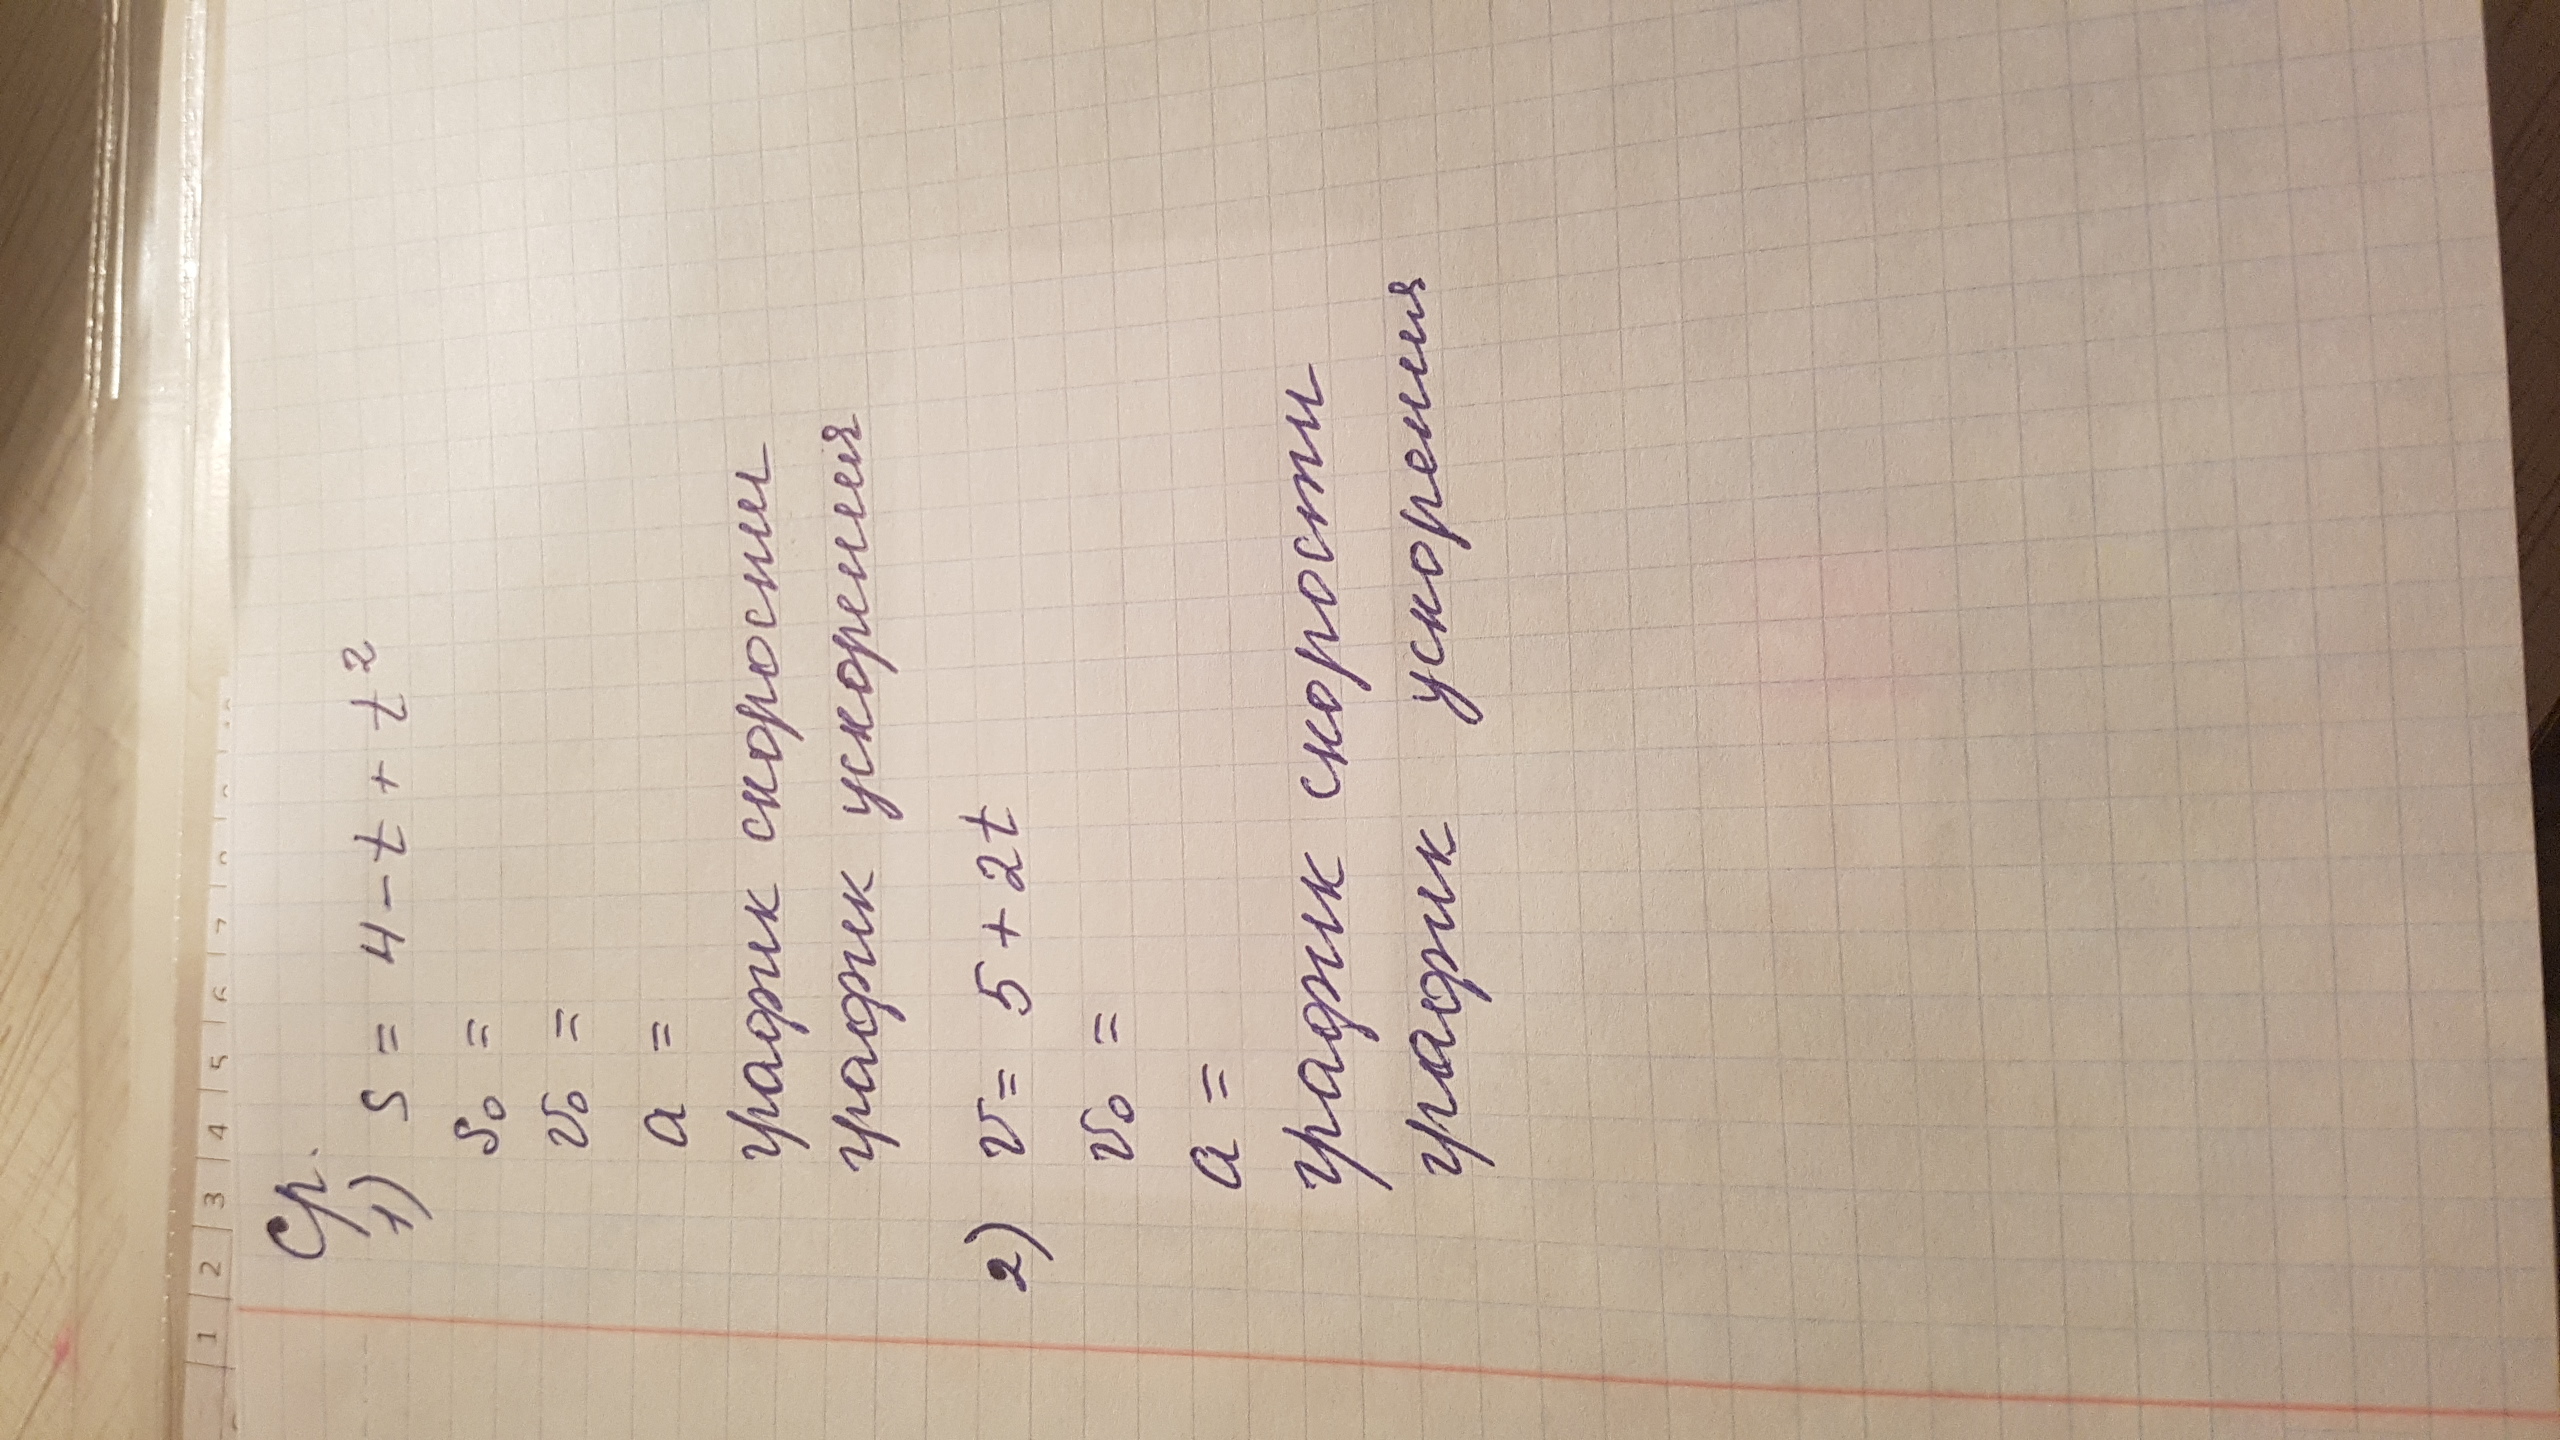 Ср.
1) S = 4 - t + t²
S₀ =
v₀ =
a =
график скорости
график ускорения
2) v = 5 + 2t
v₀ =
a =
график скорости
график ускорения
1 2 3 4 5 6 7